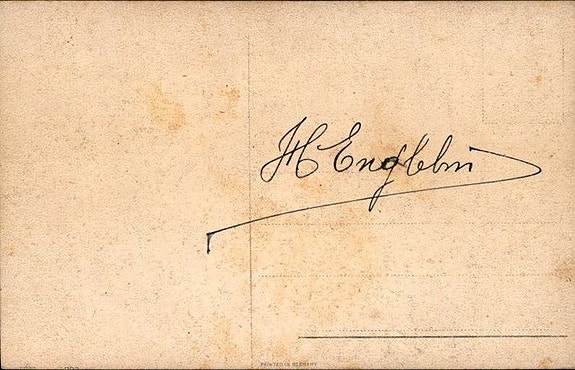 H Englebin
PRINTED IN GERMANY